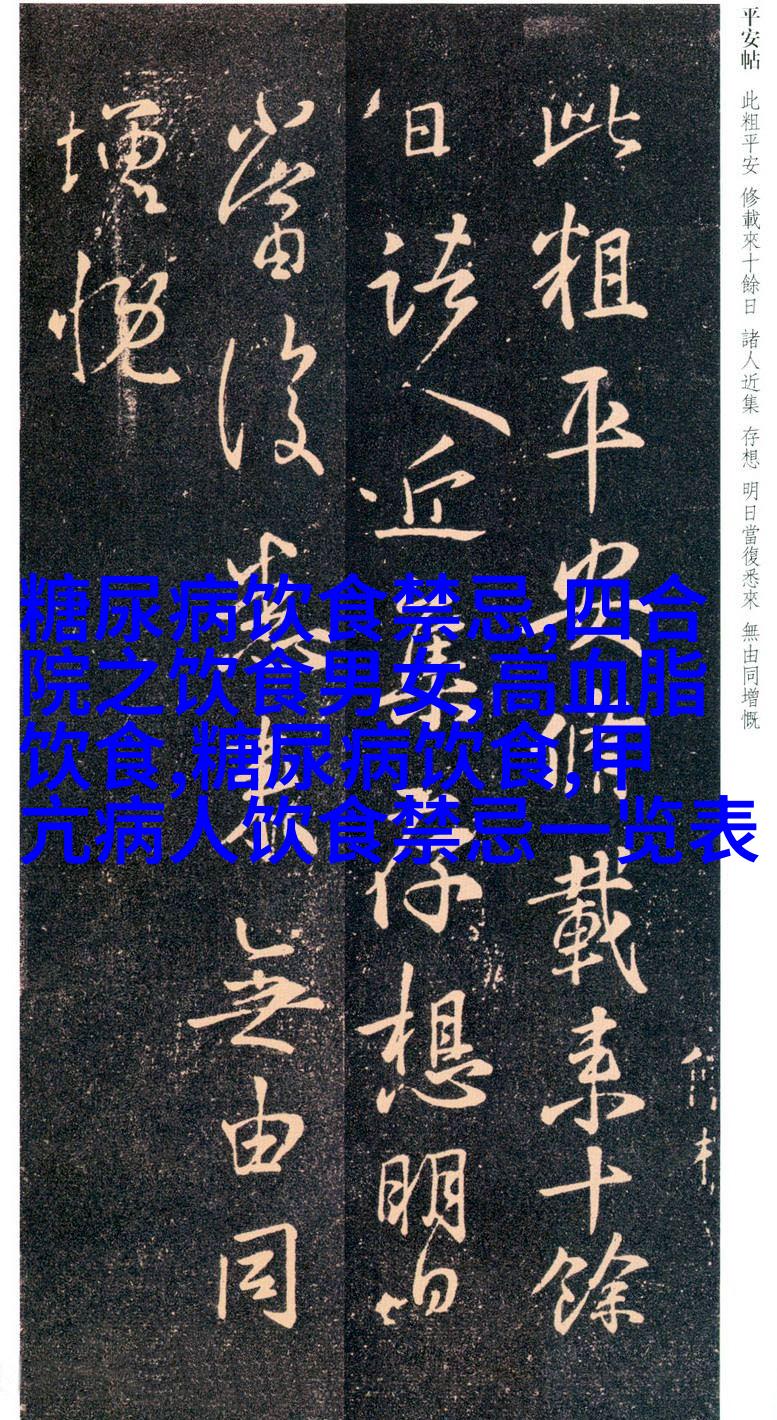 平安帖 此粗平安 修載來十餘日 諸人近集 存想 明日當復悉來 無由同增慨
此粗平安脩載来十餘
日諸人近集存想明日
當復悉来無由同
增慨
糖尿病饮食禁忌,四合
院之饮食男女,高血脂
饮食,糖尿病饮食,甲
亢病人饮食禁忌一览表